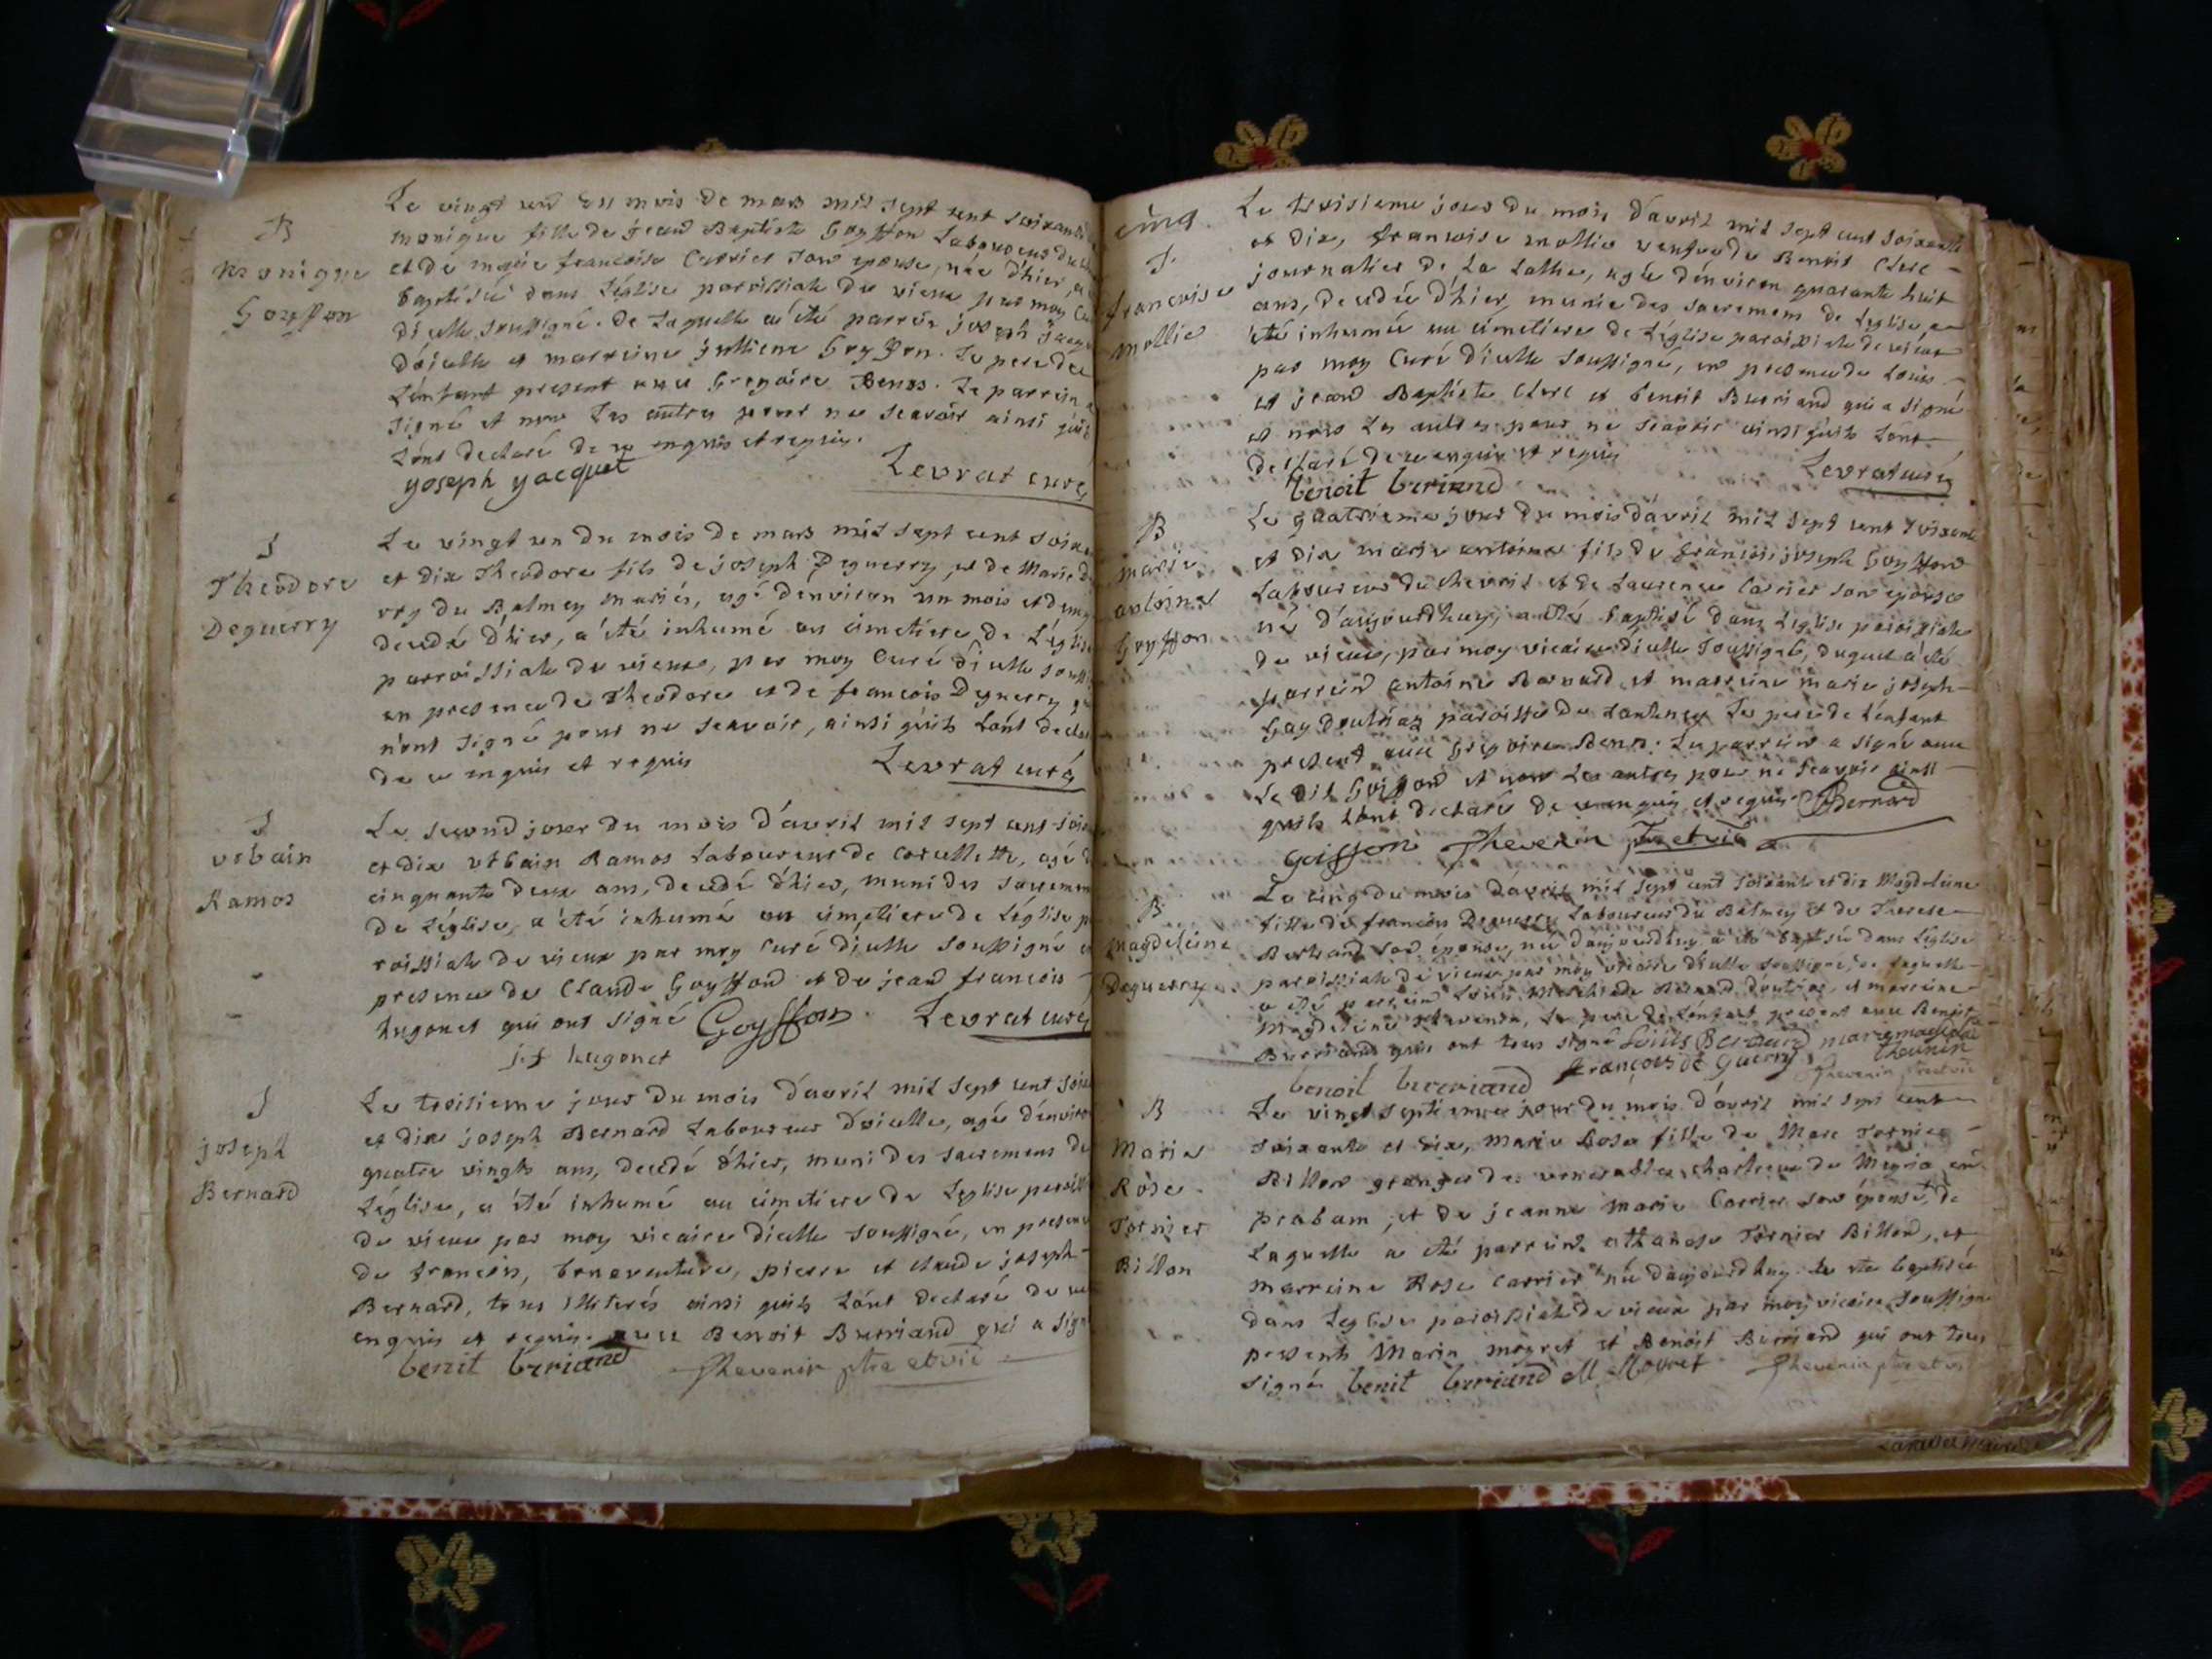 B
Monique
Goyffon
Le vingt un du mois de mars mil sept cent soixante
monique fille de jean Baptiste Goyffon Laboureur du
et de marie francoise Carrier son epouse, née d'hier, a
baptisée dans L'église parroissiale de vieux par moy Cu
d'icelle soussigné. de Laquelle a été parrein joseph jacq
d'oiselle et marreine jullienne Goyffon. Le pere de
L'enfant present avec Gregoire Benos. Le parrein a
signé et non Les autres pour ne scavoir ainsi qu'il
L'ont declaré de ce enquis et requis.
yoseph yacquet Levrat curé
S
Theodore
Deguerry
Le vingt un du mois de mars mil sept cent soixa
et dix Theodore fils de joseph Deguerry, et de Marie
du Balmey mariés, agé denviron un mois et demy
decedé d'hier, a été inhumé au cimetiere de L'église
parroissiale de vieux, par moy Curé d'icelle souss
en presence de Theodore et de francois Deguerry
n'ont signé pour ne scavoir, ainsi qu'ils L'ont decla
de ce enquis et requis Levrat curé
S
vrbain
Ramos
Le second jour du mois d'avril mil sept cent soix
et dix vrbain Ramos Laboureur de corcellette, agé d
cinquante deux ans, decedé d'hier, muni des sacremen
de L'église, a été inhumé au cimetiere de L'église p
roissiale de vieux par moy Curé d'icelle soussigné e
presence de Claude Goyffond et de jean francois
hugonet qui ont signé Goyffon Levrat curé
j.f hugonet
S
joseph
Bernard
Le troisieme jour du mois d'avril mil sept cent soix
et dix joseph Bernard Laboureur d'oiselle, agé d'enviro
quatre vingts ans, decedé d'hier, muni des sacremens de
L'église, a été inhumé au cimetiere de L'eglise paroiss
de vieux par moy vicaire d'icelle soussigné, en presen
de francois, bonaventure, pierre et claude joseph
Bernard, tous illiterés ainsi qu'ils L'ont declaré de ce
enquis et requis. avec Benoit Burriand qui a sign
benit beriand Thevenin ptre et vic
cinq.
S
francoise
mollie
Le troisieme jour du mois d'avril mil sept cent soixante
et dix, francoise mollie veufve de Benoit Clerc
journalier de La Lalhe, agée d'environ quarante huit
ans, decedée d'hier, munie des sacremens de Leglise, a
été inhumée au cimetiere de L'église paroissiale de vieux
par moy Curé d'icelle soussigné, en presence de Louis
et jean Baptiste Clerc et benoit Burriand qui a signé
et non Les autres pour ne scavoir ainsi qu'ils L'ont
declaré de ce enquis et requis Levrat curé
benoit beriand
B
marie
antoine
Goyffon
Le quatrieme jour du mois d'avril mil sept cent soixante
et dix marie antoine fils de francois joseph Goyffond
Laboureur du chevril et de Laurence Carrier son epouse
né d'aujourdhuy, a été baptisé dans Leglise paroissiale
de vieux, par moy vicaire d'icelle soussigné, duquel a été
parrein antoine Bernard, et marreine marie joseph
Gay paroisse de Le pere de L'enfant
present avec Gregoire Benos. Le parrein a signé avec
Le dit Goiffond et non Les autres pour ne scavoir ainsi
qu'ils L'ont declaré de ce enquis et requis Bernard
goiffon Thevenin ptre et vic
B
Magdeleine
Deguerry
Le cinq du mois d'avril mil sept cent soixante et dix Magdeleine
fille de francois Deguerry Laboureur du Balmey et de Therese
Bertrand son épouse, née d'aujourdhuy a été baptisée dans L'église
paroissiale de vieux par moy vicaire d'icelle soussigné, de laquelle
a été parrein Louis Bernard et marreine
Magdeleine Thevenin, Le pere de L'enfant present avec Benoit
Burriand qui ont tous signé Louis Bernard
françois de Guerry Thevenin
benoit berriand Thevenin ptre et vic
B
Marie
Rose
Tornier
Billon
Le vingt septieme jour du mois d'avril mil sept cent
soixante et dix, Marie Rose fille de Marc Tornier
Billon granger des venerables chartreux de Meyria en
prabam, et de jeanne Marie Carrier son épouse, de
Laquelle a été parrein athanase Tornier Billon, et
marreine Rose Carrier née d'aujourdhuy baptisée
dans Leglise paroissiale de vieux par moy vicaire soussigné
presents Marin moyret et Benoist Burriand qui ont tous
signé benit beriand M Moyret Thevenin ptre et vic